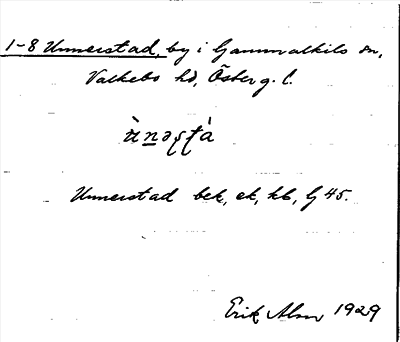 1-8 Unnerstad, by i Gammalkils sn,
Valkebo hd, Österg. l.
Unnerstad bek, ek, kb, G 45.
Erik Alm 1929